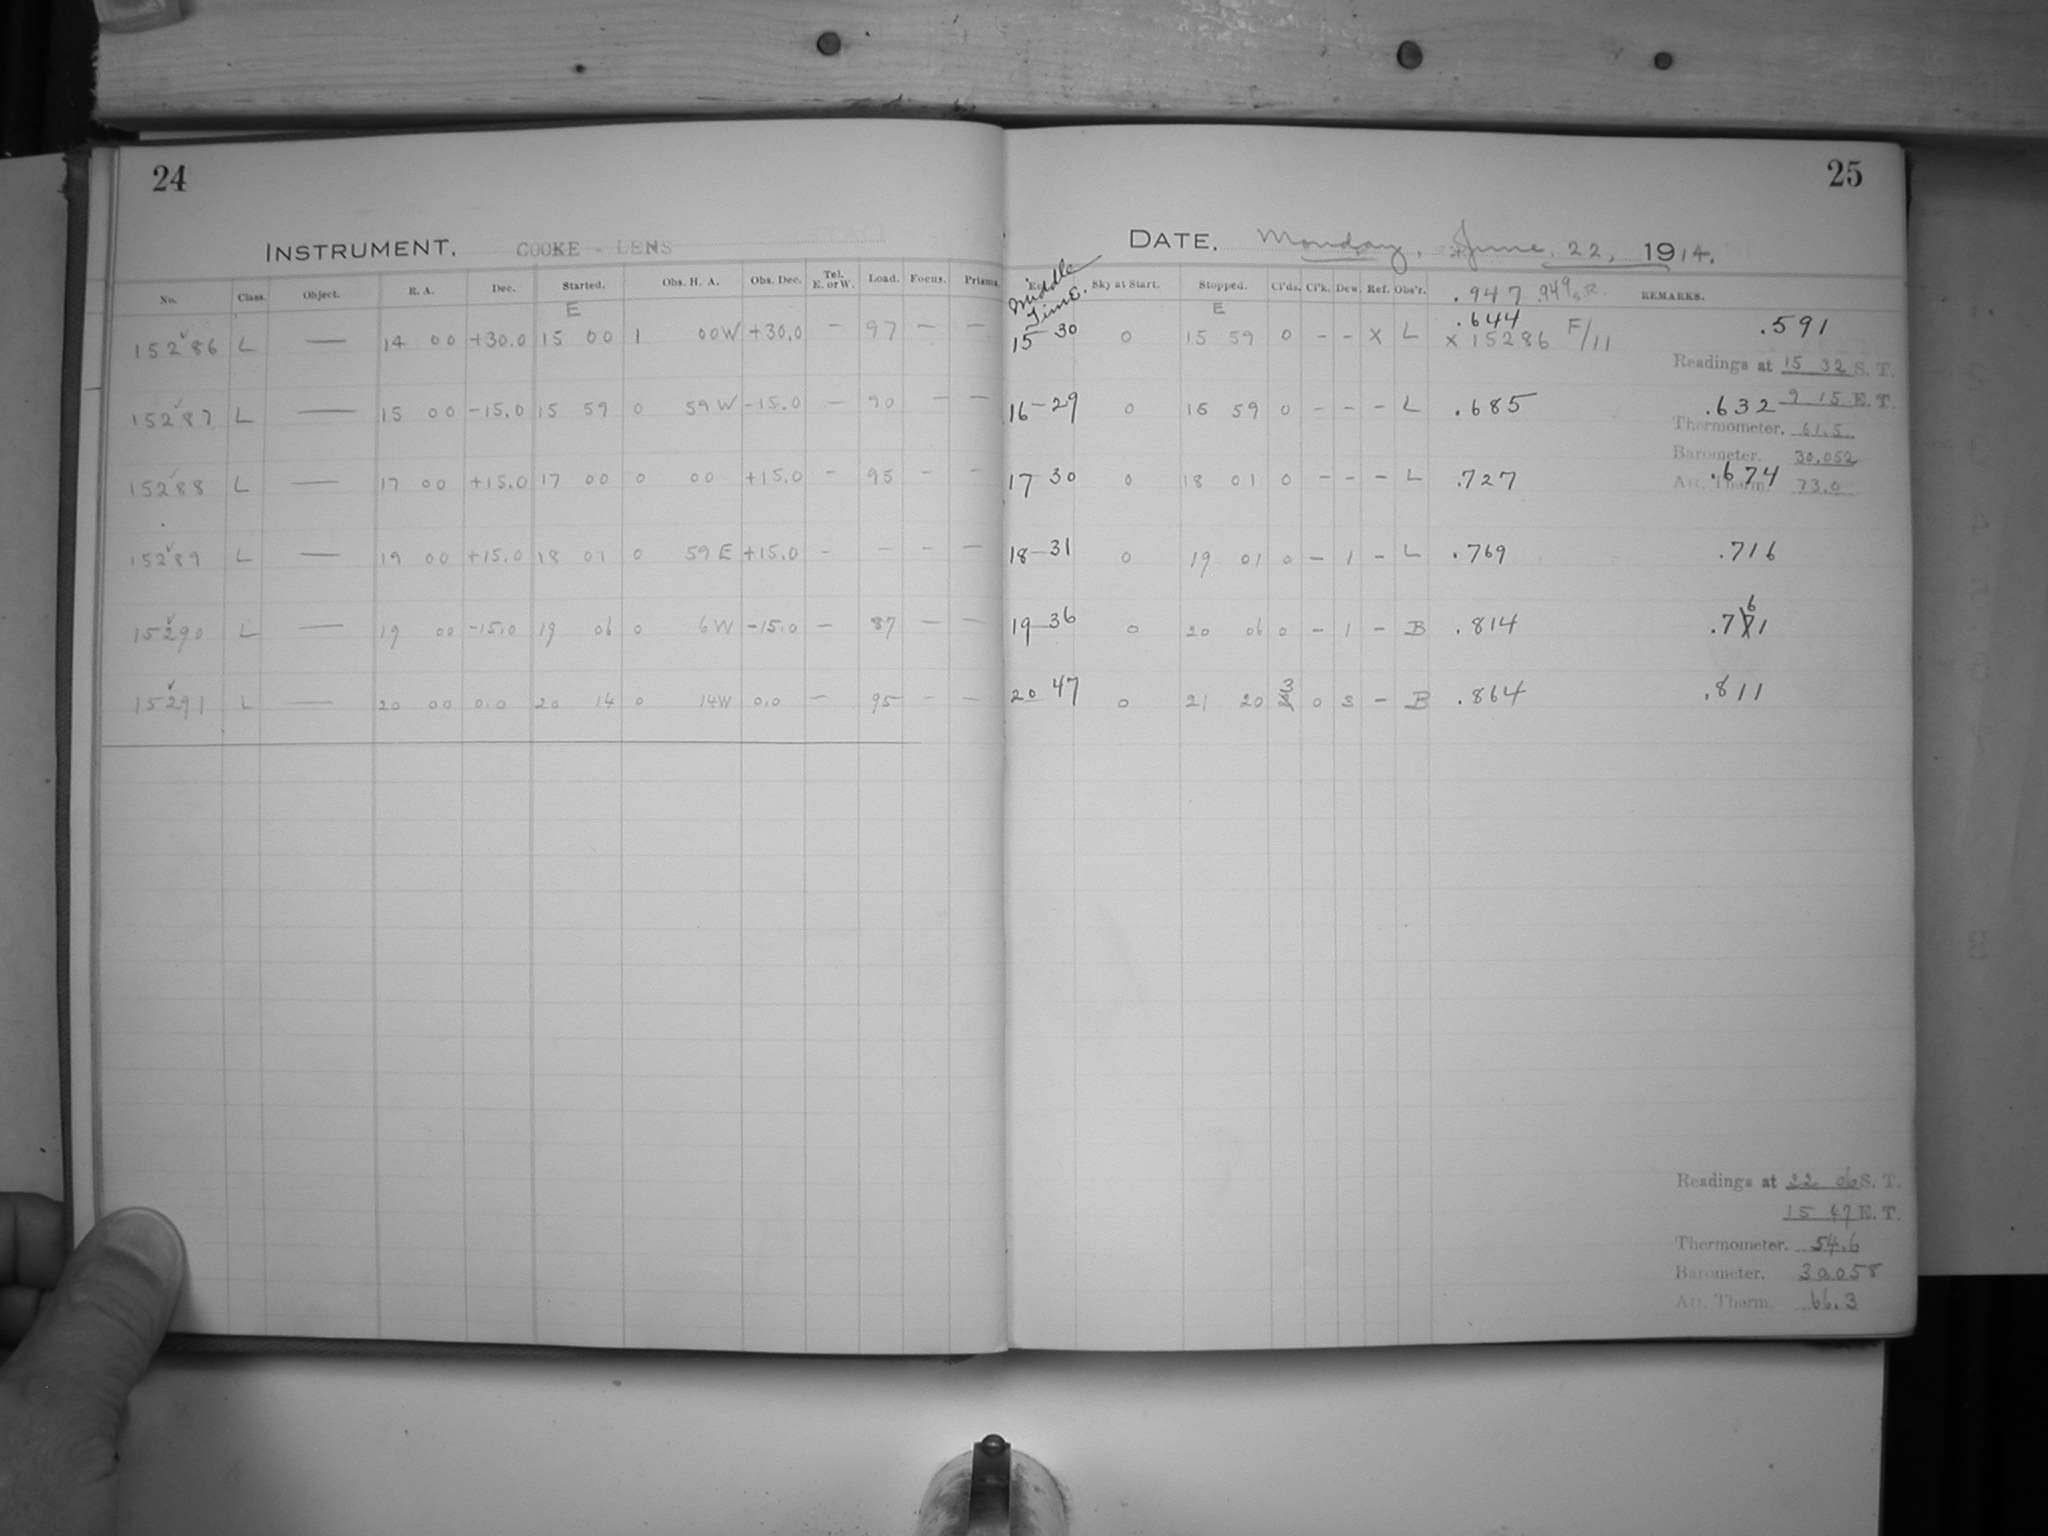 24
25
INSTRUMENT. COOKE - LENS
DATE. Monday, June 22, 1914.
No. Class. Object. R. A. Dec. Started. Obs. H. A. Obs. Dec. Tel. E. or W. Load. Focus. Prisms. Middle Time. Sky at Start. Stopped. Cl'ds. Cl'k. Dew. Ref. Obs'r. .947 .949 REMARKS.
E E .644
15286 L — 14 00 +30.0 15 00 1 00W +30.0 — 97 — — 15 30 0 15 59 0 - - X L x 15286 F/11 .591
Readings at 15 32 S. T.
9 15 E. T.
15287 L — 15 00 -15.0 15 59 0 59 W -15.0 — 90 — — 16-29 0 16 59 0 - - - L .685 .632
Thermometer. 61.5
Barometer. 30.052
15288 L — 17 00 +15.0 17 00 0 00 +15.0 - 95 - - 17 30 0 18 01 0 - - - L .727 .674
Att. Therm. 73.0
15289 L — 19 00 +15.0 18 01 0 59 E +15.0 - - - - 18-31 0 19 01 0 - 1 - L .769 .716
15290 L — 19 00 -15.0 19 06 0 6W -15.0 — 87 — — 19-36 0 20 06 0 - 1 - B .814 .761
15291 L — 20 00 0.0 20 14 0 14W 0.0 — 95 - — 20 47 0 21 20 3 0 3 - B .864 .811
Readings at 22 06 S. T.
15 47 E. T.
Thermometer. 54.6
Barometer. 30.058
Att. Therm. 66.3